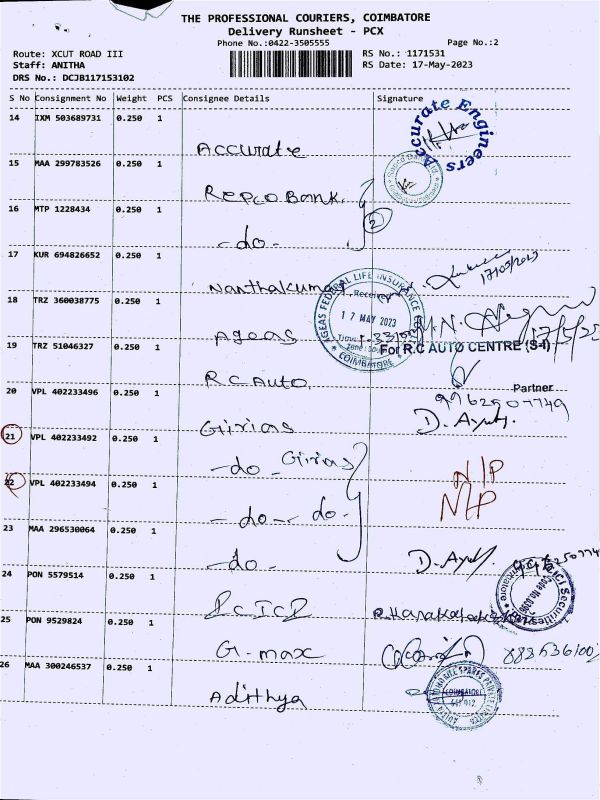 THE PROFESSIONAL COURIERS, COIMBATORE
Delivery Runsheet - PCX
Phone No.:0422-3505555 Page No.:2
Route: XCUT ROAD III RS No.: 1171531
Staff: ANITHA RS Date: 17-May-2023
DRS No.: DCJB117153102
S No Consignment No Weight PCS Consignee Details Signature
14 IXM 503689731 0.250 1 Accurate
Accurate Engineers
15 MAA 299783526 0.250 1 Repco Bank
16 MTP 1228434 0.250 1 -do- 2
17 KUR 694826652 0.250 1 Nanthakumar 17/05/2023
18 TRZ 360038775 0.250 1 Ageas
AGEAS FEDERAL LIFE INSURANCE
Received
17 MAY 2023
COIMBATORE
17/5/23
19 TRZ 51046327 0.250 1 R.C Auto.
For R.C AUTO CENTRE (S-I)
Partner
20 VPL 402233496 0.250 1 Girias D. Ayu
9962507749
21 VPL 402233492 0.250 1 -do- Girias N/P
22 VPL 402233494 0.250 1 -do- -do- N/P
23 MAA 296530064 0.250 1 -do- D. Ayu
24 PON 5579514 0.250 1 ICICI
25 PON 9529824 0.250 1 G-max
26 MAA 300246537 0.250 1 Adithya
COIMBATORE
641 012